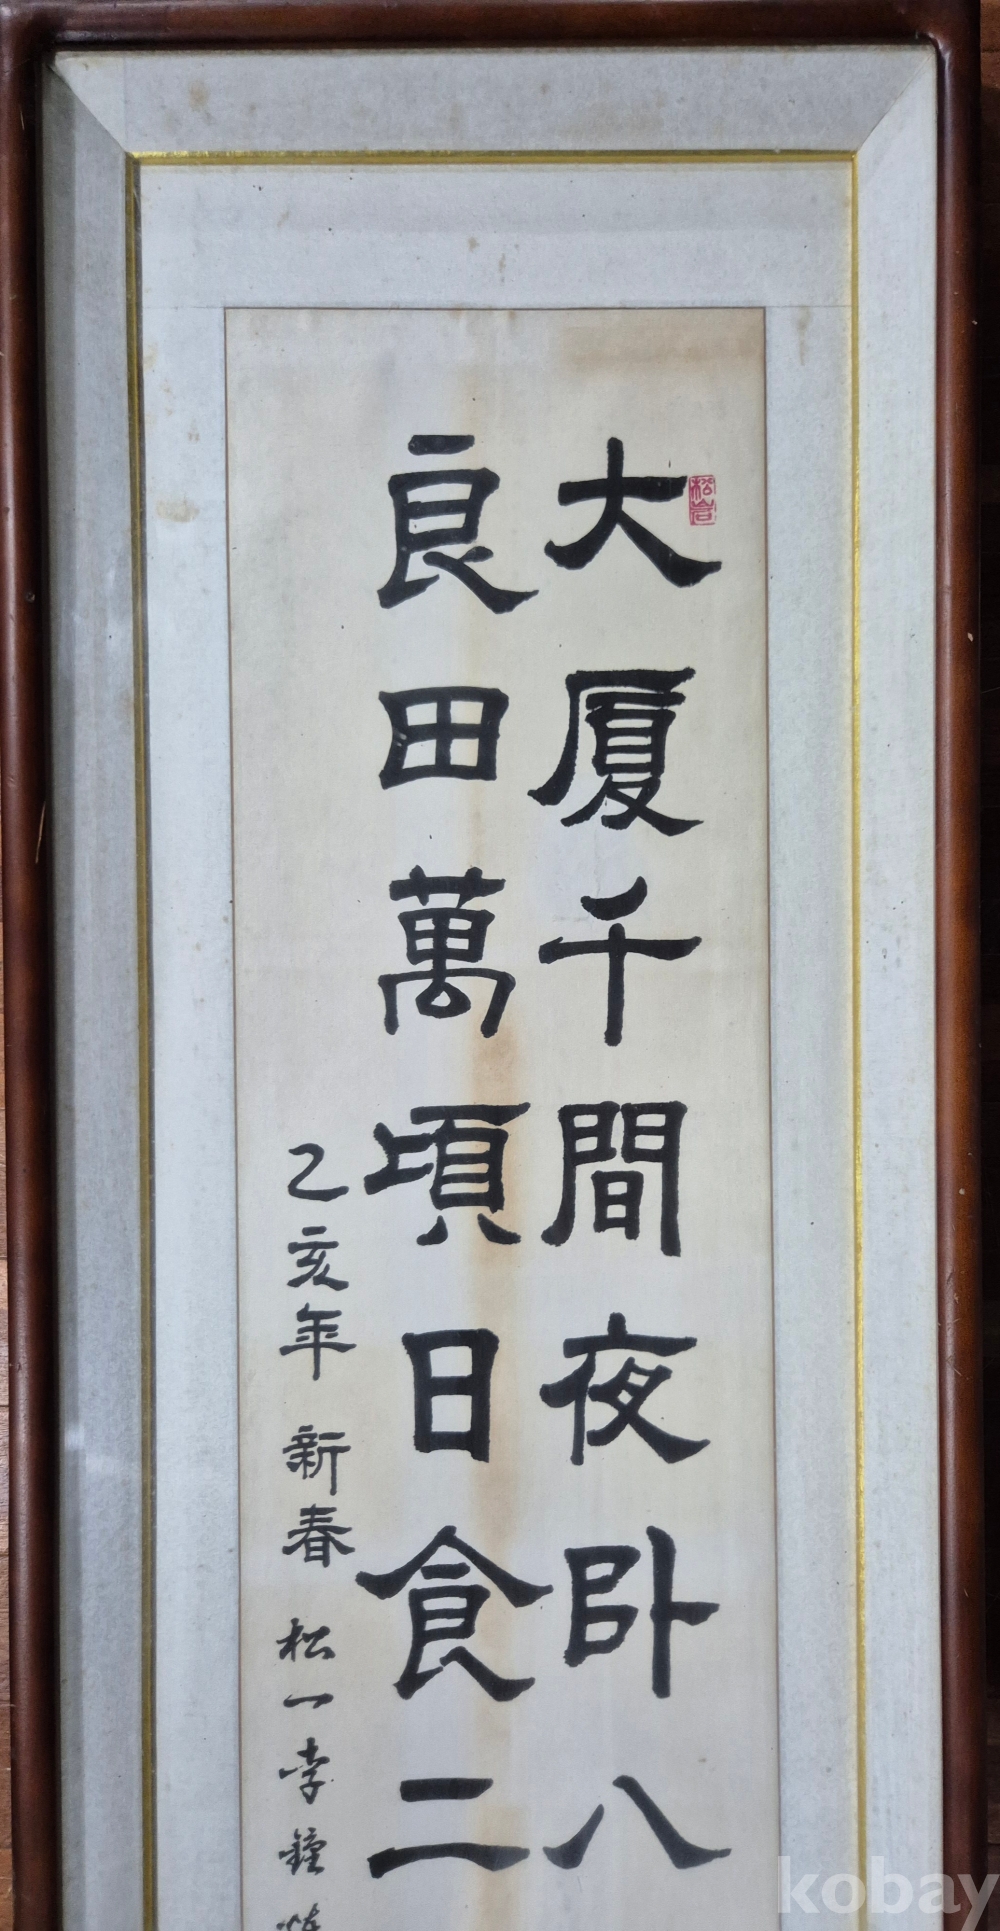 大厦千間夜卧八
良田萬頃日食二
乙亥年 新春 松一 李鐘
松岩
kobay